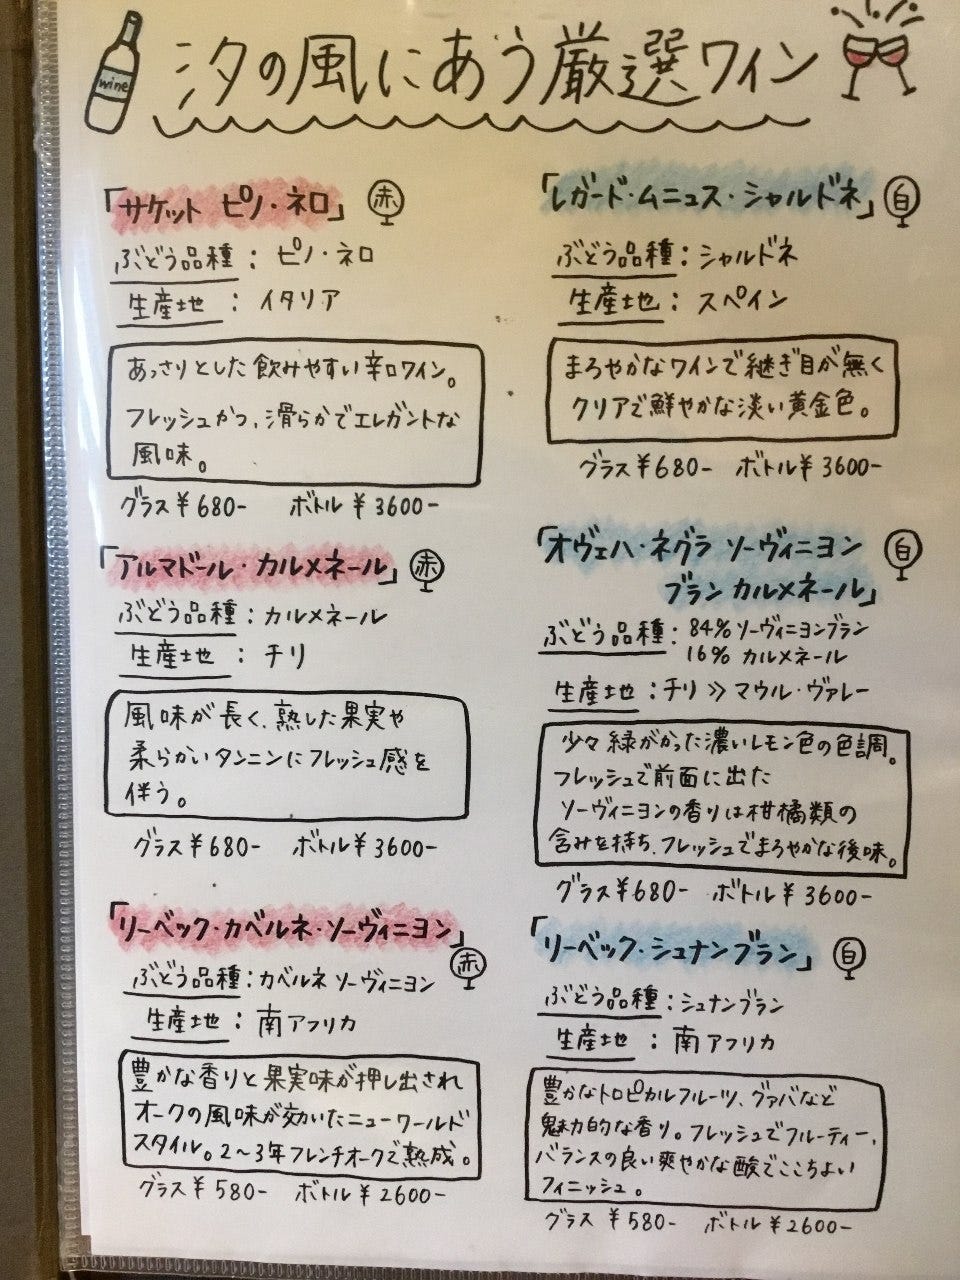 wine
汐の風にあう厳選ワイン
「サケット ピノ・ネロ」 赤
ぶどう品種 : ピノ・ネロ
生産地 : イタリア
あっさりとした飲みやすい辛口ワイン。
フレッシュかつ、滑らかでエレガントな
風味。
グラス ¥680- ボトル ¥3600-
「アルマドール・カルメネール」 赤
ぶどう品種 : カルメネール
生産地 : チリ
風味が長く、熟した果実や
柔らかいタンニンにフレッシュ感を
伴う。
グラス ¥680- ボトル ¥3600-
「リーベック・カベルネ・ソーヴィニヨン」 赤
ぶどう品種 : カベルネ ソーヴィニヨン
生産地 : 南アフリカ
豊かな香りと果実味が押し出され
オークの風味が効いたニューワールド
スタイル。2〜3年フレンチオークで熟成。
グラス ¥580- ボトル ¥2600-
「レガード・ムニュス・シャルドネ」 白
ぶどう品種 : シャルドネ
生産地 : スペイン
まろやかなワインで継ぎ目が無く
クリアで鮮やかな淡い黄金色。
グラス ¥680- ボトル ¥3600-
「オヴェハ・ネグラ ソーヴィニヨン 白
ブラン カルメネール」
ぶどう品種 : 84% ソーヴィニヨンブラン
16% カルメネール
生産地 : チリ ≫ マウル・ヴァレー
少々緑がかった濃いレモン色の色調。
フレッシュで前面に出た
ソーヴィニヨンの香りは柑橘類の
含みを持ち、フレッシュでまろやかな後味。
グラス ¥680- ボトル ¥3600-
「リーベック・シュナンブラン」 白
ぶどう品種 : シュナンブラン
生産地 : 南アフリカ
豊かなトロピカルフルーツ、グァバなど
魅力的な香り。フレッシュでフルーティー、
バランスの良い爽やかな酸でここちよい
フィニッシュ。
グラス ¥580- ボトル ¥2600-